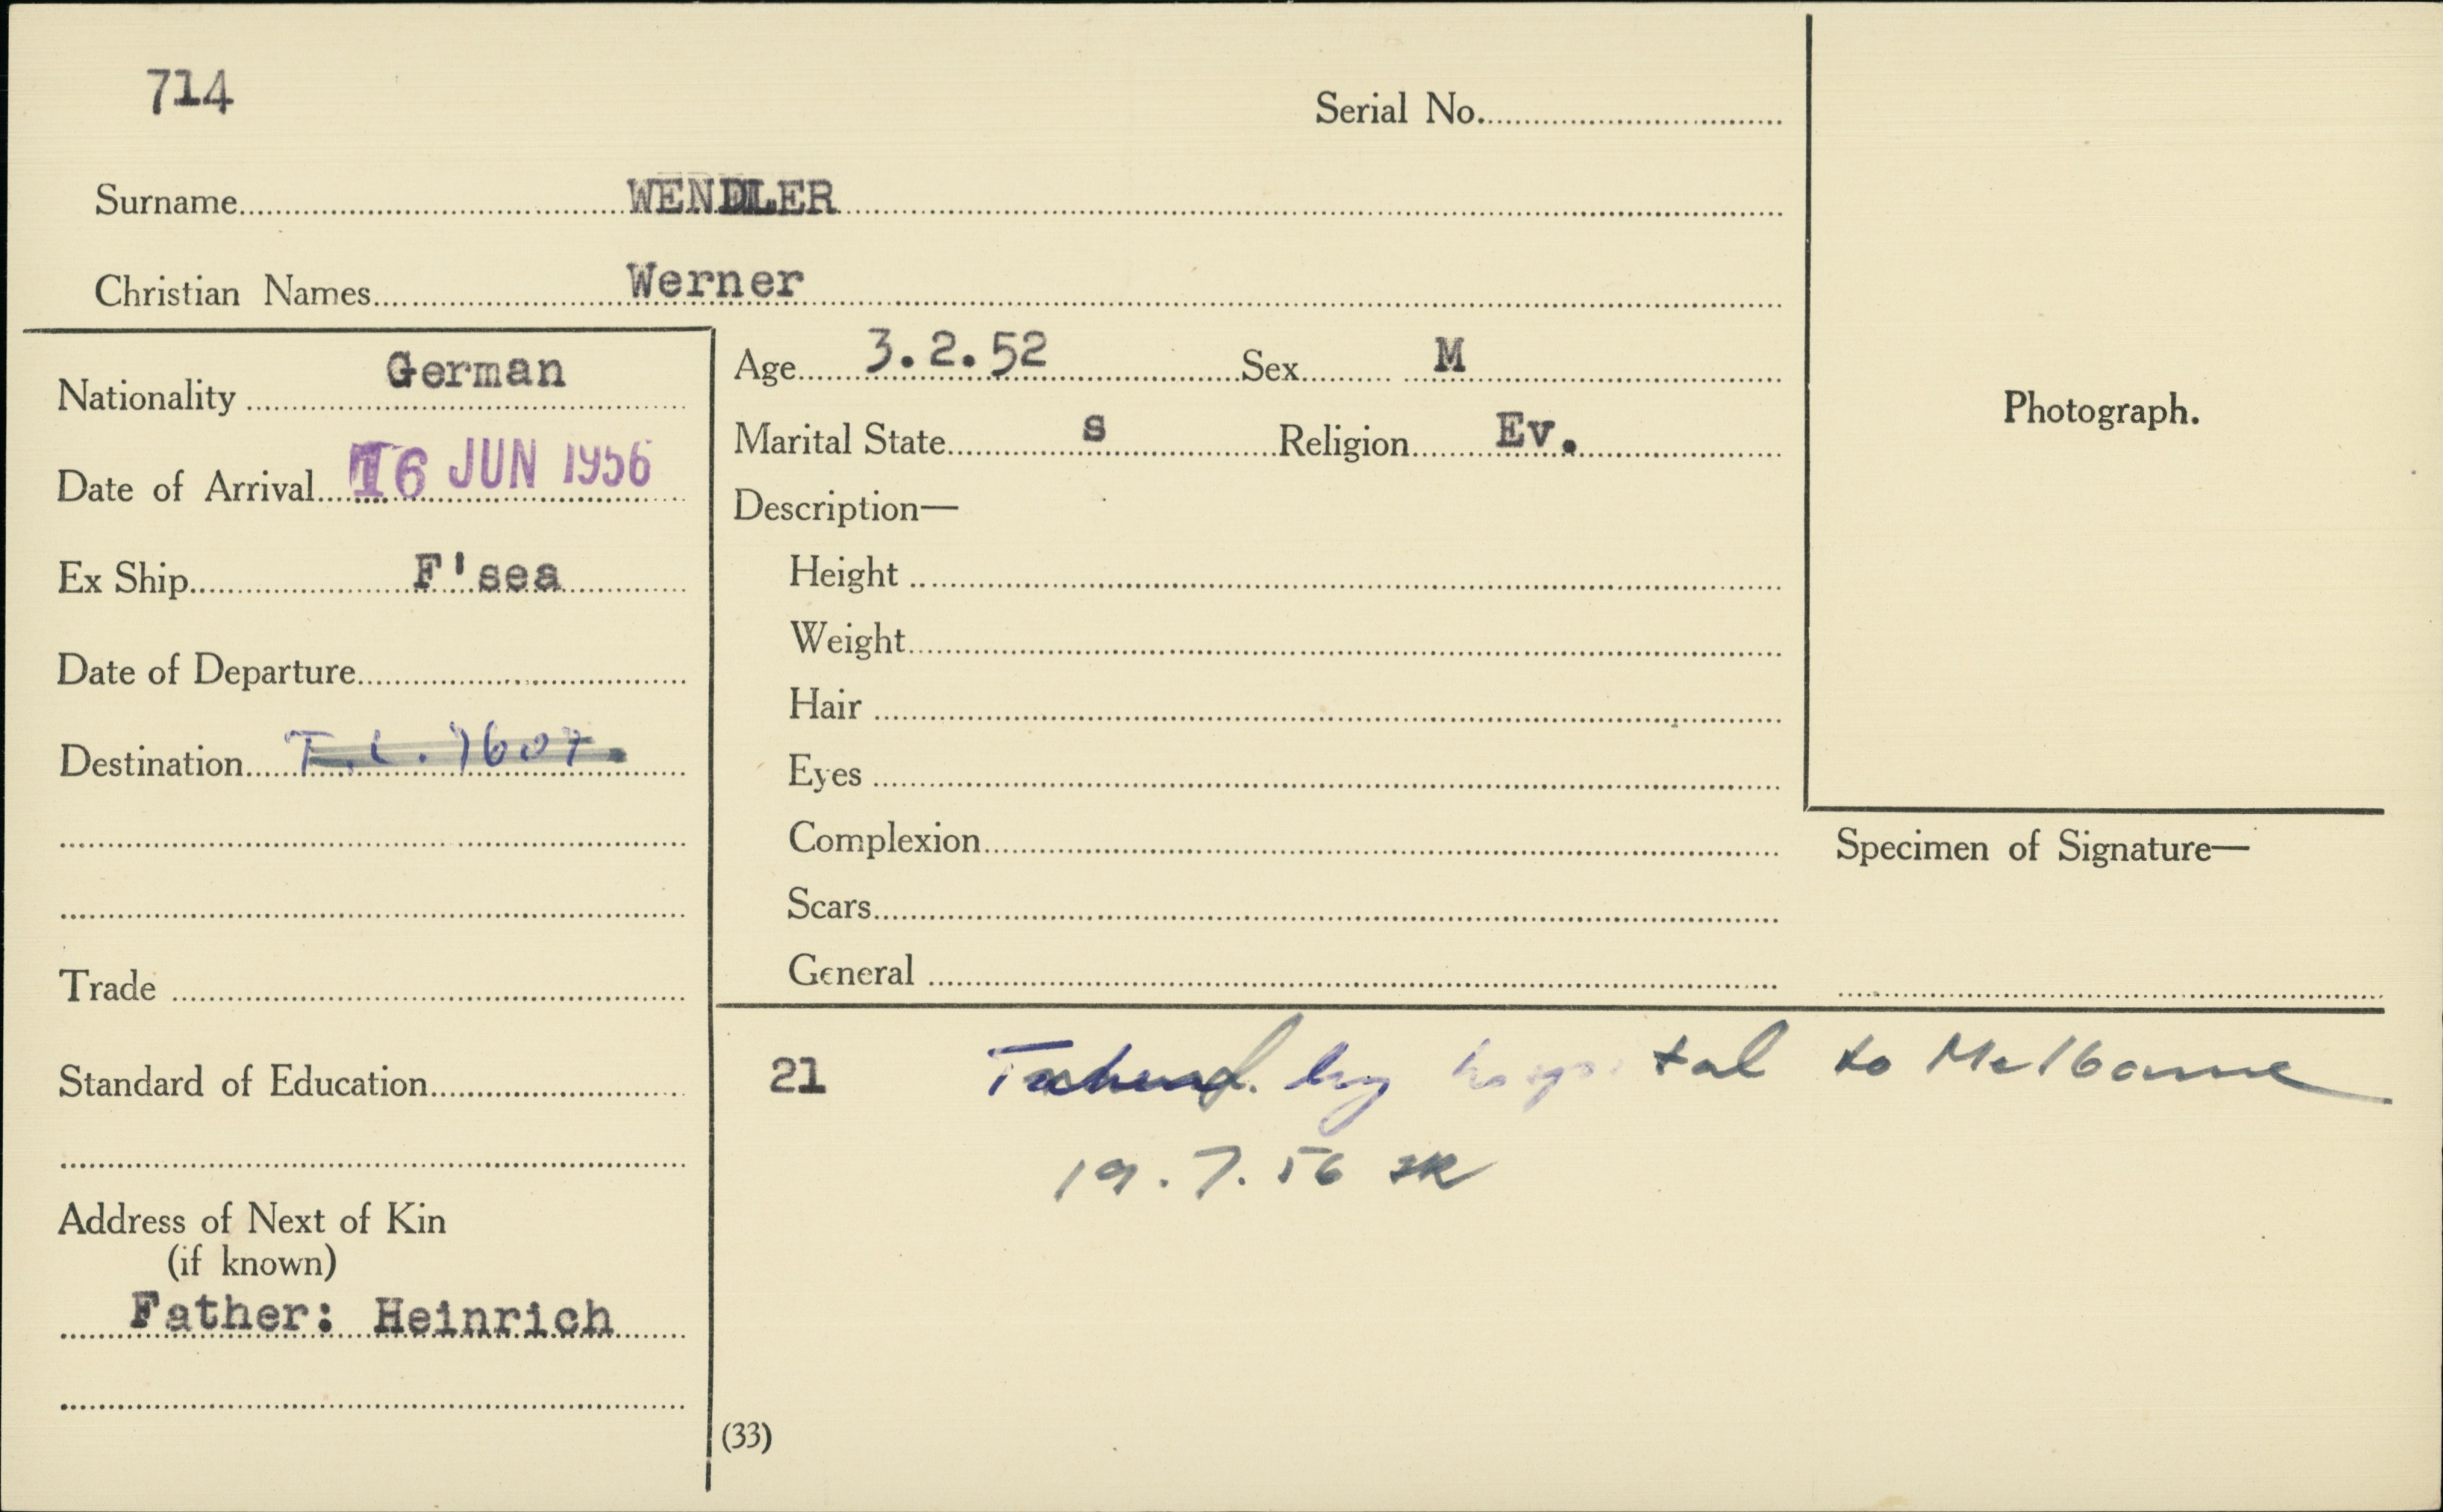 714
Serial No.
Surname WENDLER
Christian Names Werner
Nationality German
Date of Arrival 16 JUN 1956
Ex Ship F'sea
Date of Departure
Destination
Trade
Standard of Education
Address of Next of Kin
(if known)
Father: Heinrich
Age 3.2.52 Sex M
Marital State s Religion Ev.
Description—
Height
Weight
Hair
Eyes
Complexion
Scars
General
Photograph.
Specimen of Signature—
21 by hospital to Melbourne
19.7.56
(33)